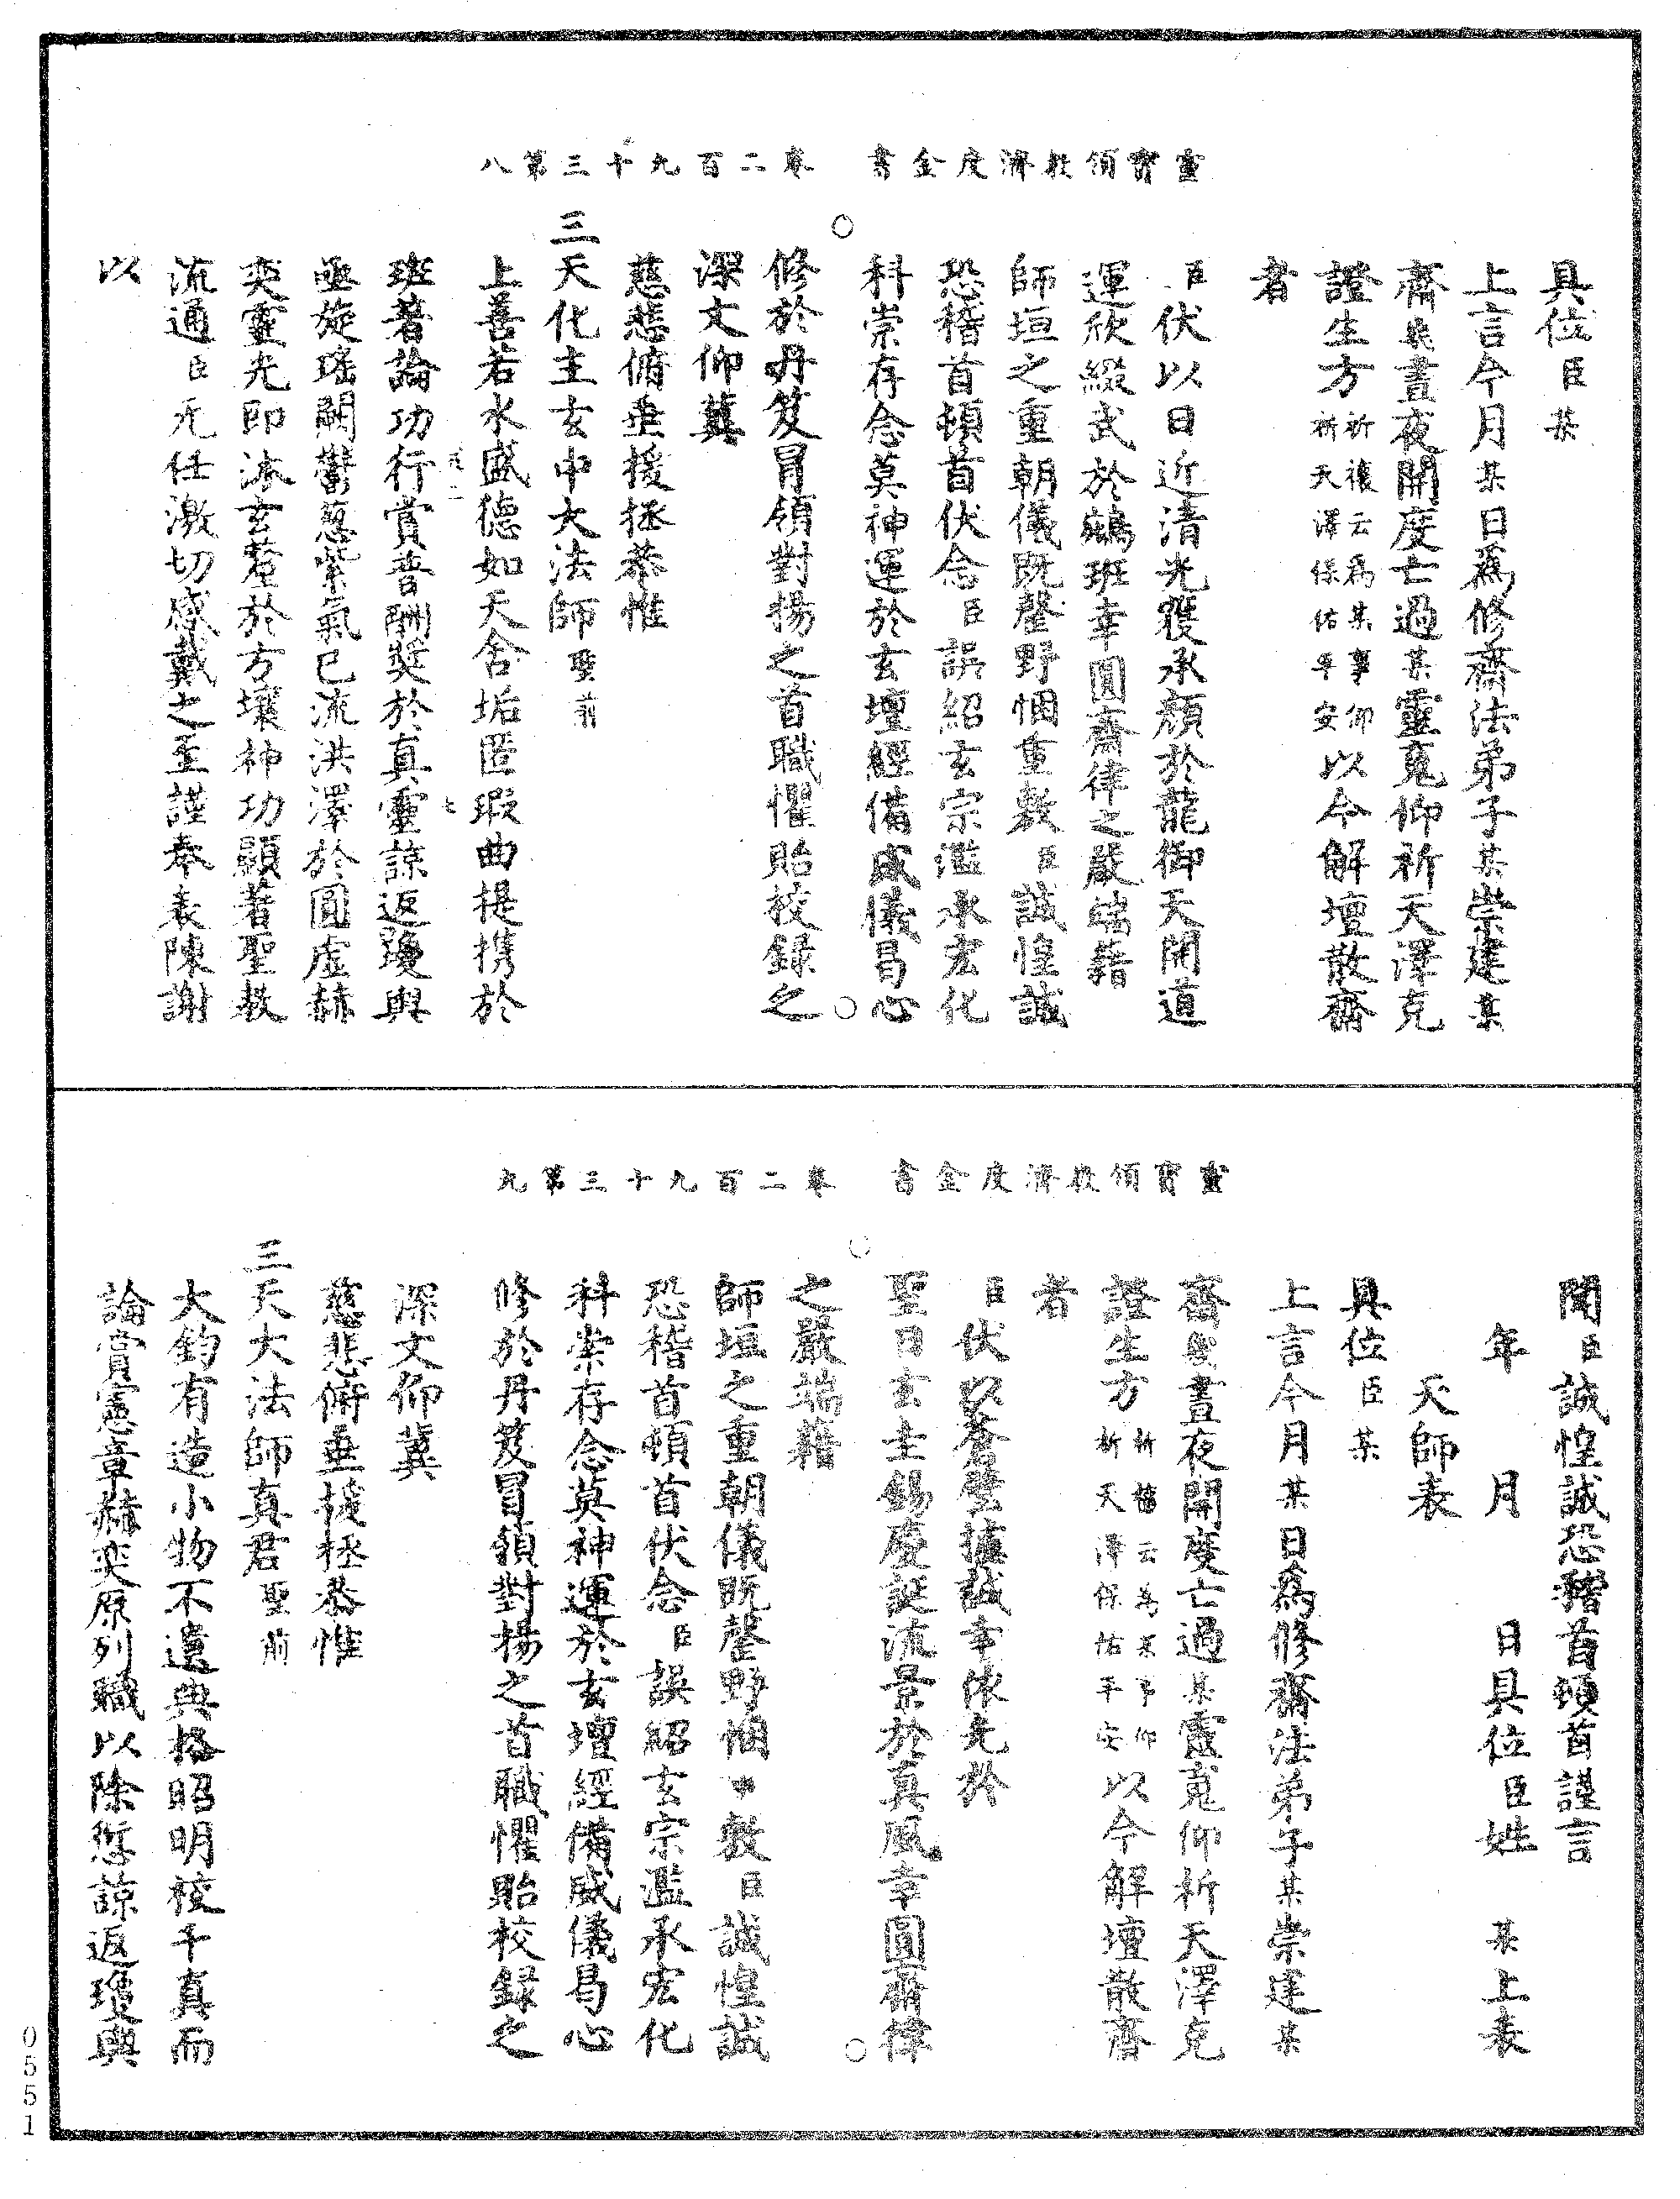 靈寶領教濟度金書　卷二百九十三第八
具位臣某
上言今月某日為修齋法弟子某崇建某
齋幾晝夜開度亡過某靈䰟仰祈天澤克
證生方祈禳云為某事仰祈天澤保佑平安以今解壇散齋
者
臣伏以日近清光獲承顏於龍御天開道
運欣綴武於鵷班幸圓齋律之嚴端藉
師垣之重朝儀既罄野悃重敷臣誠惶誠
恐稽首頓首伏念臣誤紹玄宗濫承宏化
科崇存念莫神運於玄壇經備威儀曷心
修於丹笈冒領對揚之首職懼貽校錄之
深文仰冀
慈悲俯垂援拯恭惟
三天化主玄中大法師聖前
上善若水盛德如天舍垢匿瑕曲提攜於
班著論功行賞普酬獎於真靈諒返瓊輿
亟旋瑤闕鬱葱紫氣已流洪澤於圓虛赫
奕靈光即沐玄蓋於方壤神功顯著聖教
流通臣无任激切感戴之至謹奉表陳謝
以
靈寶領教濟度金書　卷二百九十三第九
聞臣誠惶誠恐稽首頓首謹言
年　月　日具位臣姓　某上表
天師表
具位臣某
上言今月某日為修齋法弟子某崇建某
齋幾晝夜開度亡過某靈䰟仰祈天澤克
證生方祈禳云為某事仰祈天澤保佑平安以今解壇散齋
者
臣伏以蒼璧攄誠幸依光於
聖日玄圭錫慶誕流景於真風幸圓齋律
之嚴端藉
師垣之重朝儀既罄野悃敷臣誠惶誠
恐稽首頓首伏念臣誤紹玄宗濫承宏化
科崇存念莫神運於玄壇經備威儀曷心
修於丹笈冒領對揚之首職懼貽校錄之
深文仰冀
慈悲俯垂援拯恭惟
三天大法師真君聖前
大鈞有造小物不遺典格昭明校千真而
論賞憲章赫奕原列職以除愆諒返瓊輿
0551